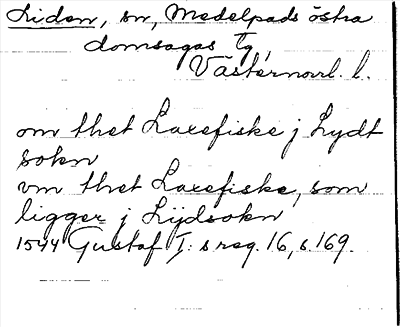 Liden, sn, Medelpads östra
domsagas tg,
Västernorrl. l.
om thet Laxefiske j Lydt
sokn
vm thet Laxefiske, som
ligger j Lijdsokn
1544 Gustaf I: s reg. 16, s. 169.